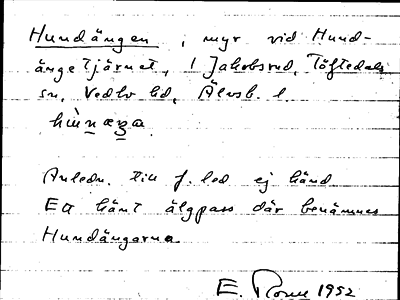 Hundängen, myr vid Hund-
ängetjärnet, i Jakobsrud, Töftedals
sn, Vedbo hd, Älvsb. l.
Anledn. till f. led ej känd
Ett känt älgpass där benämnes
Hundängarna.
E. 1952